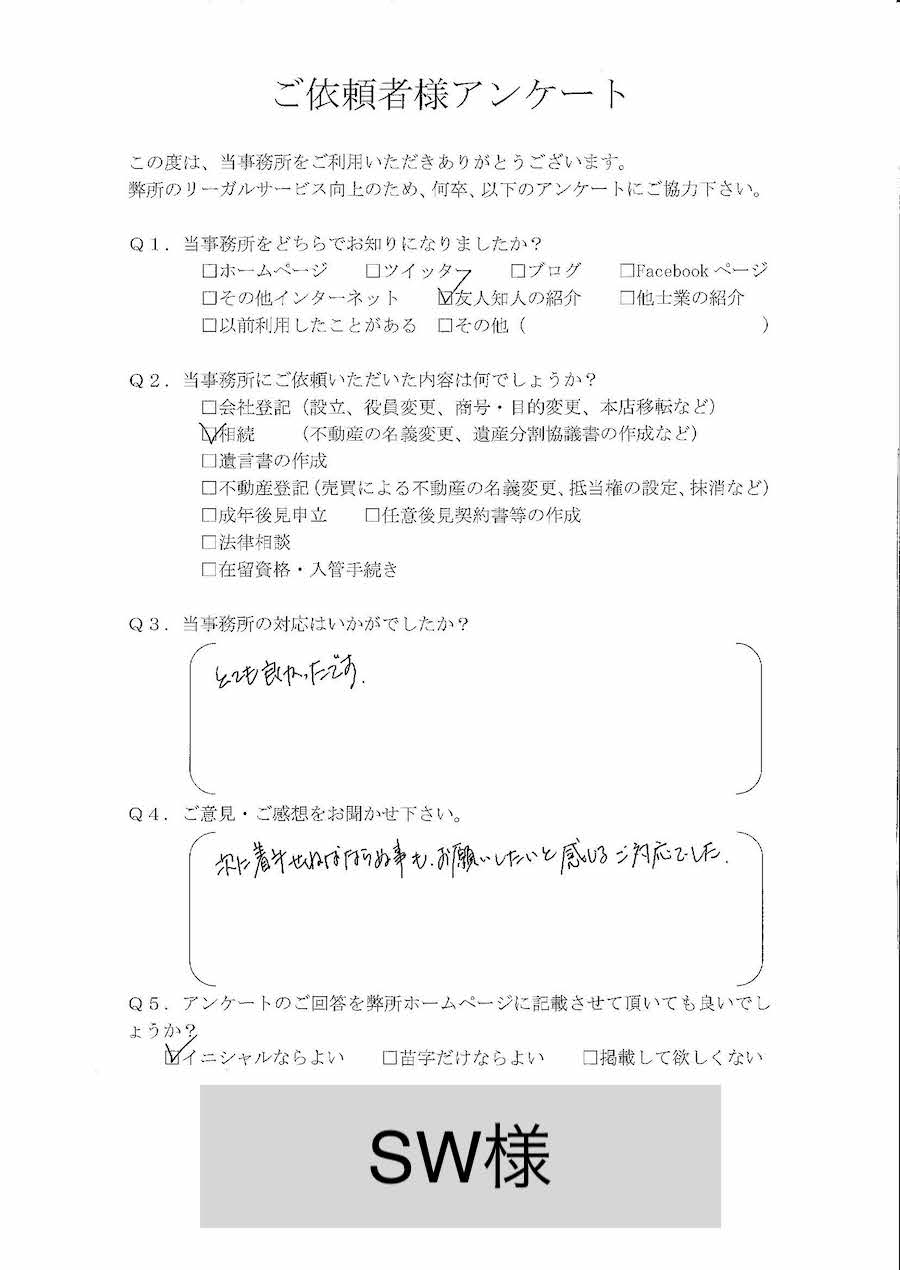 ご依頼者様アンケート
この度は、当事務所をご利用いただきありがとうございます。
弊所のリーガルサービス向上のため、何卒、以下のアンケートにご協力下さい。
Q1．当事務所をどちらでお知りになりましたか？
□ホームページ　□ツイッター　□ブログ　□Facebookページ
□その他インターネット　☑友人知人の紹介　□他士業の紹介
□以前利用したことがある　□その他（　　　）
Q2．当事務所にご依頼いただいた内容は何でしょうか？
□会社登記（設立、役員変更、商号・目的変更、本店移転など）
☑相続　（不動産の名義変更、遺産分割協議書の作成など）
□遺言書の作成
□不動産登記（売買による不動産の名義変更、抵当権の設定、抹消など）
□成年後見申立　□任意後見契約書等の作成
□法律相談
□在留資格・入管手続き
Q3．当事務所の対応はいかがでしたか？
とても良かったです.
Q4．ご意見・ご感想をお聞かせ下さい。
次に着手せねばならぬ事も、お願いしたいと感じるご対応でした.
Q5．アンケートのご回答を弊所ホームページに記載させて頂いても良いでし
ょうか？
☑イニシャルならよい　□苗字だけならよい　□掲載して欲しくない
SW様